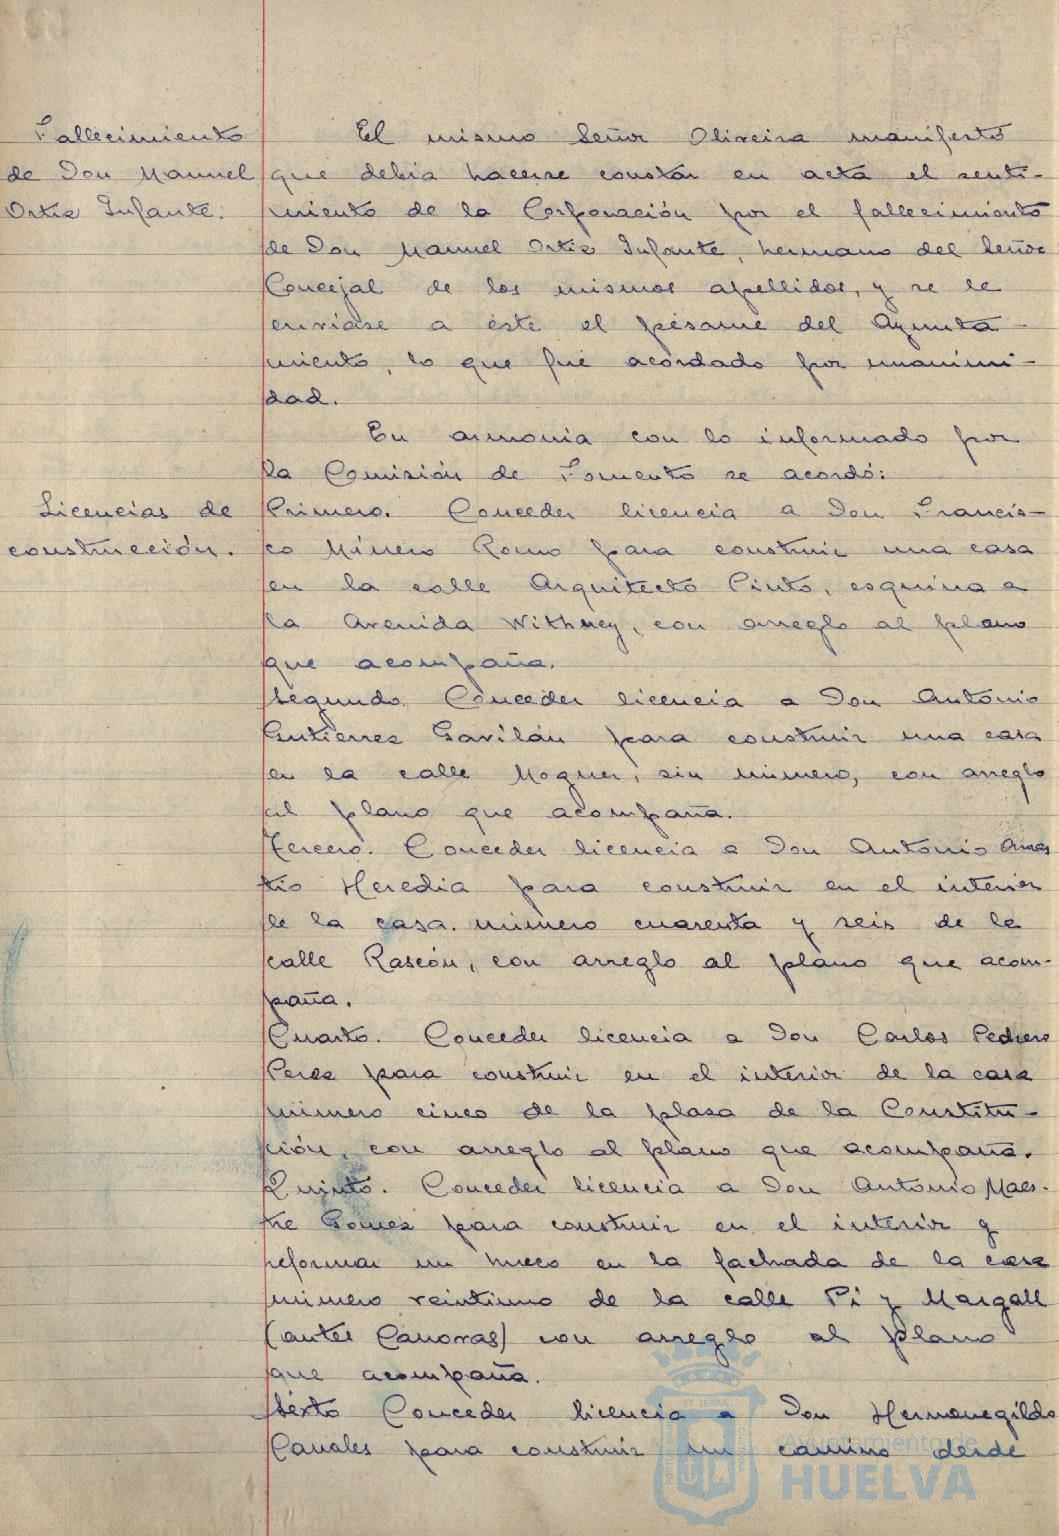 Fallecimiento
de Don Manuel
Ortiz Infante.
El mismo Señor Oliveira manifestó
que debia hacerse constar en acta el senti-
miento de la Corporación por el fallecimiento
de Don Manuel Ortiz Infante, hermano del Señor
Concejal de los mismos apellidos, y se le
enviase a éste el pésame del Ayunta-
miento, lo que fué acordado por unanimi-
dad.
En armonia con lo informado por
la Comisión de Fomento se acordó:
Licencias de
construcción.
Primero. Conceder licencia a Don Francis-
co Minero Romo para construir una casa
en la calle Arquitecto Pinto, esquina a
la Avenida Withney, con arreglo al plano
que acompaña.
Segundo. Conceder licencia a Don Antonio
Gutierrez Gavilán para construir una casa
en la calle Moguer, sin número, con arreglo
al plano que acompaña.
Tercero. Conceder licencia a Don Antonio
Heredia para construir en el interior
de la casa número cuarenta y seis de la
calle Rascón, con arreglo al plano que acom-
paña.
Cuarto. Conceder licencia a Don Carlos Pedrero
Perez para construir en el interior de la casa
número cinco de la plasa de la Constitu-
ción, con arreglo al plano que acompaña.
Quinto. Conceder licencia a Don Antonio Maes-
tre Gomez para construir en el interior y
reformar un hueco en la fachada de la casa
número veintiuno de la calle Pi y Margall
(antes Canovas) con arreglo al plano
que acompaña.
Sexto Conceder licencia a Don Hermenegildo
Canales para construir un camino desde
Ayuntamiento de
HUELVA